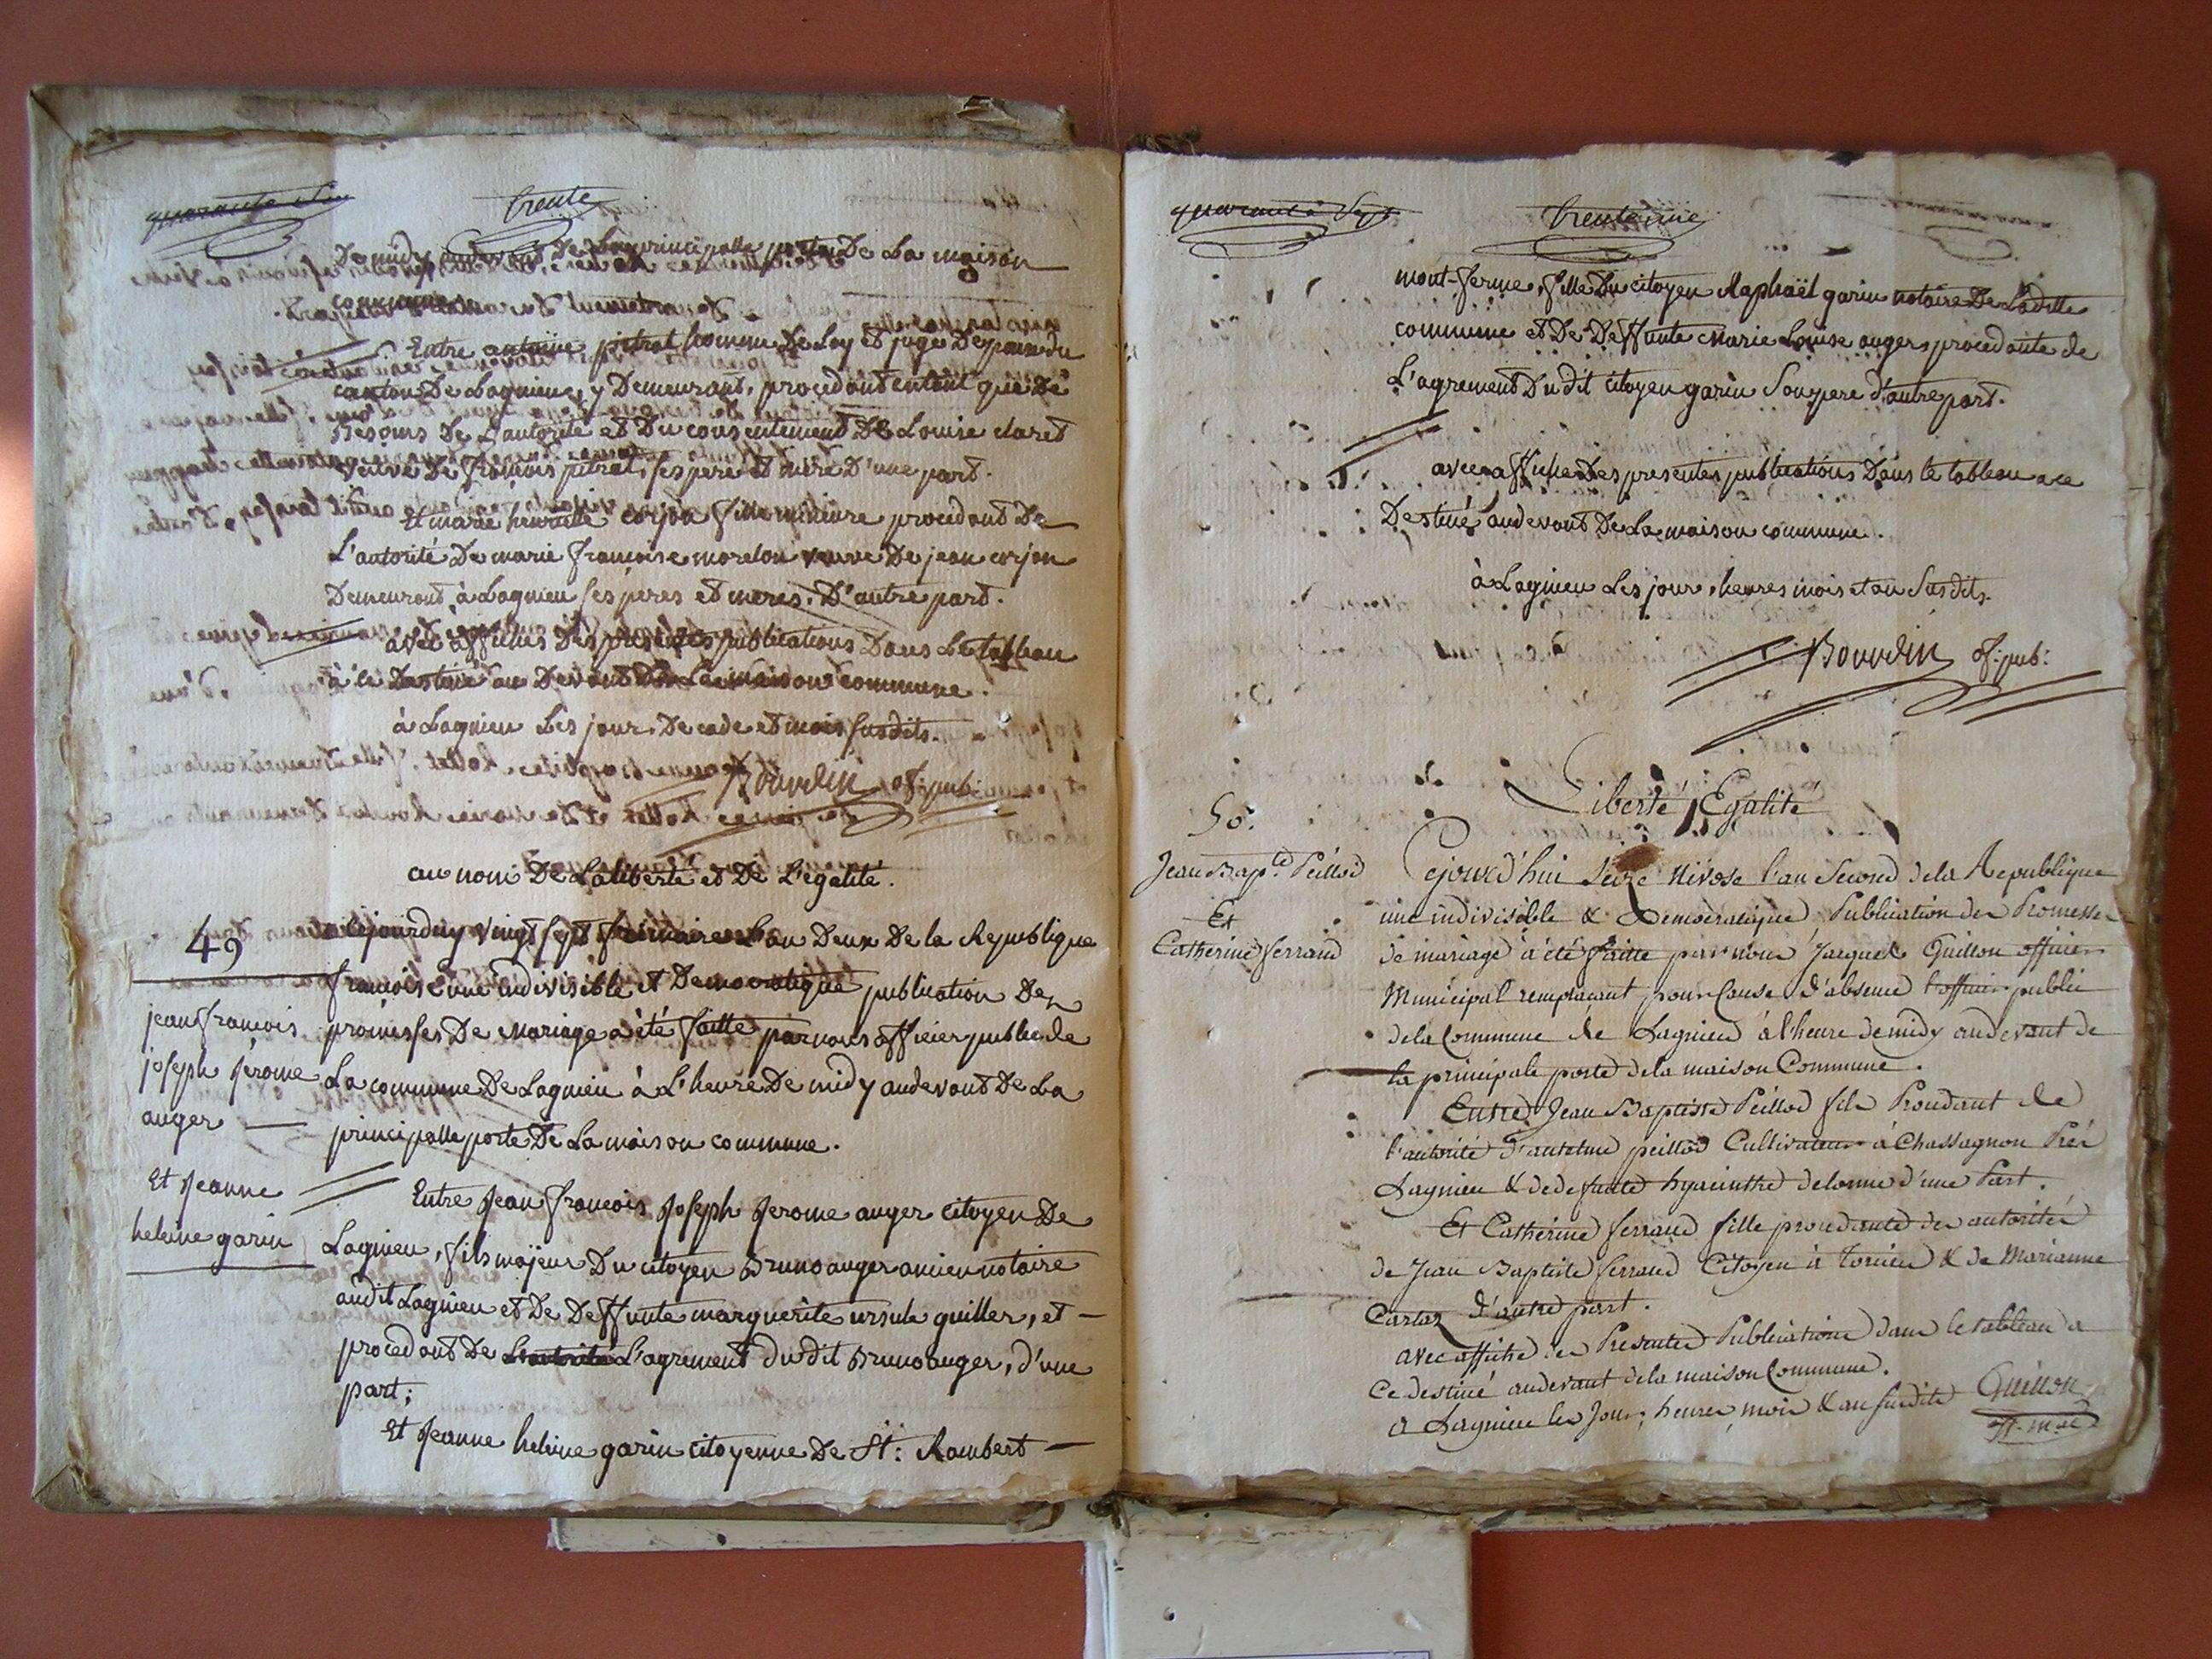 trente
De midy au devant De La principalle porte De La maison
commune.
Entre antoine pitrat homme De Loy et juge De paix du
canton De Lagnieu, y Demeurant, procedant entant que De
Besoins De L'autorité et Du consentement De Louise claret
veuve De françois pitrat, ses pere et mere D'une part.
Et marie henriette corjon fille mineure procedant De
L'autorité De marie françoise morelon veuve De jean corjon
Demeurant à Lagnieu ses peres et meres. D'autre part.
avec affiches Des presentes publications Dans Le tableau
à ce Destiné au Devant De La maison commune.
à Lagnieu Les jour, Decade et mois susdits.
Bourdin of: pub:
au nom De La liberté et De L'egalité.
49
jean françois
joseph jérome
auger
Et Jeanne
helene garin
Cejourduy vingt sept frimaire L'an Deux De la Republique
françoise une indivisible et Democratique publication Des
promesses De Mariage a été faitte par nous officier public de
La commune De Lagnieu à L'heure De midy audevant De La
principalle porte De La maison commune.
Entre Jean françois Joseph Jerome auger citoyen De
Lagnieu, fils majeur Du citoyen Bruno auger ancien notaire
audit Lagnieu et De Deffunte marguerite ursule quiller, et
procedant De L'autorité L'agrement du dit Bruno auger, d'une
part;
Et Jeanne helene garin citoyenne De St: Rambert
quarante Sept
trente une
mont-ferme, fille Du citoyen Raphaël garin notaire De Ladite
commune et De Deffunte Marie Louise augers procedante de
L'agrement Du dit citoyen garin Son pere d'autre part.
avec affiche Des presentes publications Dans le tableau a ce
Destiné audevant De La maison commune.
à Lagnieu Les jour, heures mois et an Susdits.
Bourdin of: pub:
Liberté, Egalité
50.
Jean Bap.te Peillod
Et
Catherine ferrand
Cejourd'hui Seize Nivose l'an Second de la Republique
une indivisible & Democratique Publication des Promesses
de mariage a été faitte par nous Jacques Guillon officier
Municipal remplacant pour Cause d'absence l'officier public
de la Commune de Lagnieu à l'heure de midy audevant de
la principale porte de la maison Commune.
Entre Jean Baptiste Peillod fils Proudant de
l'autorité d'antelme peillod Cultivateur à Chassagnon Prés
Lagnieu & de defunte hyacinthe delorme d'une Part.
Et Catherine ferrand fille proudante des autorités
de Jean Baptiste ferrand Citoyen à torcieu & de Marianne
Cartaz d'autre part.
avec affiche des Presentes Publications dans le tableau a
Ce destiné audevant de la maison Commune.
a Lagnieu les Jour, heures, mois & an susdits Guillon